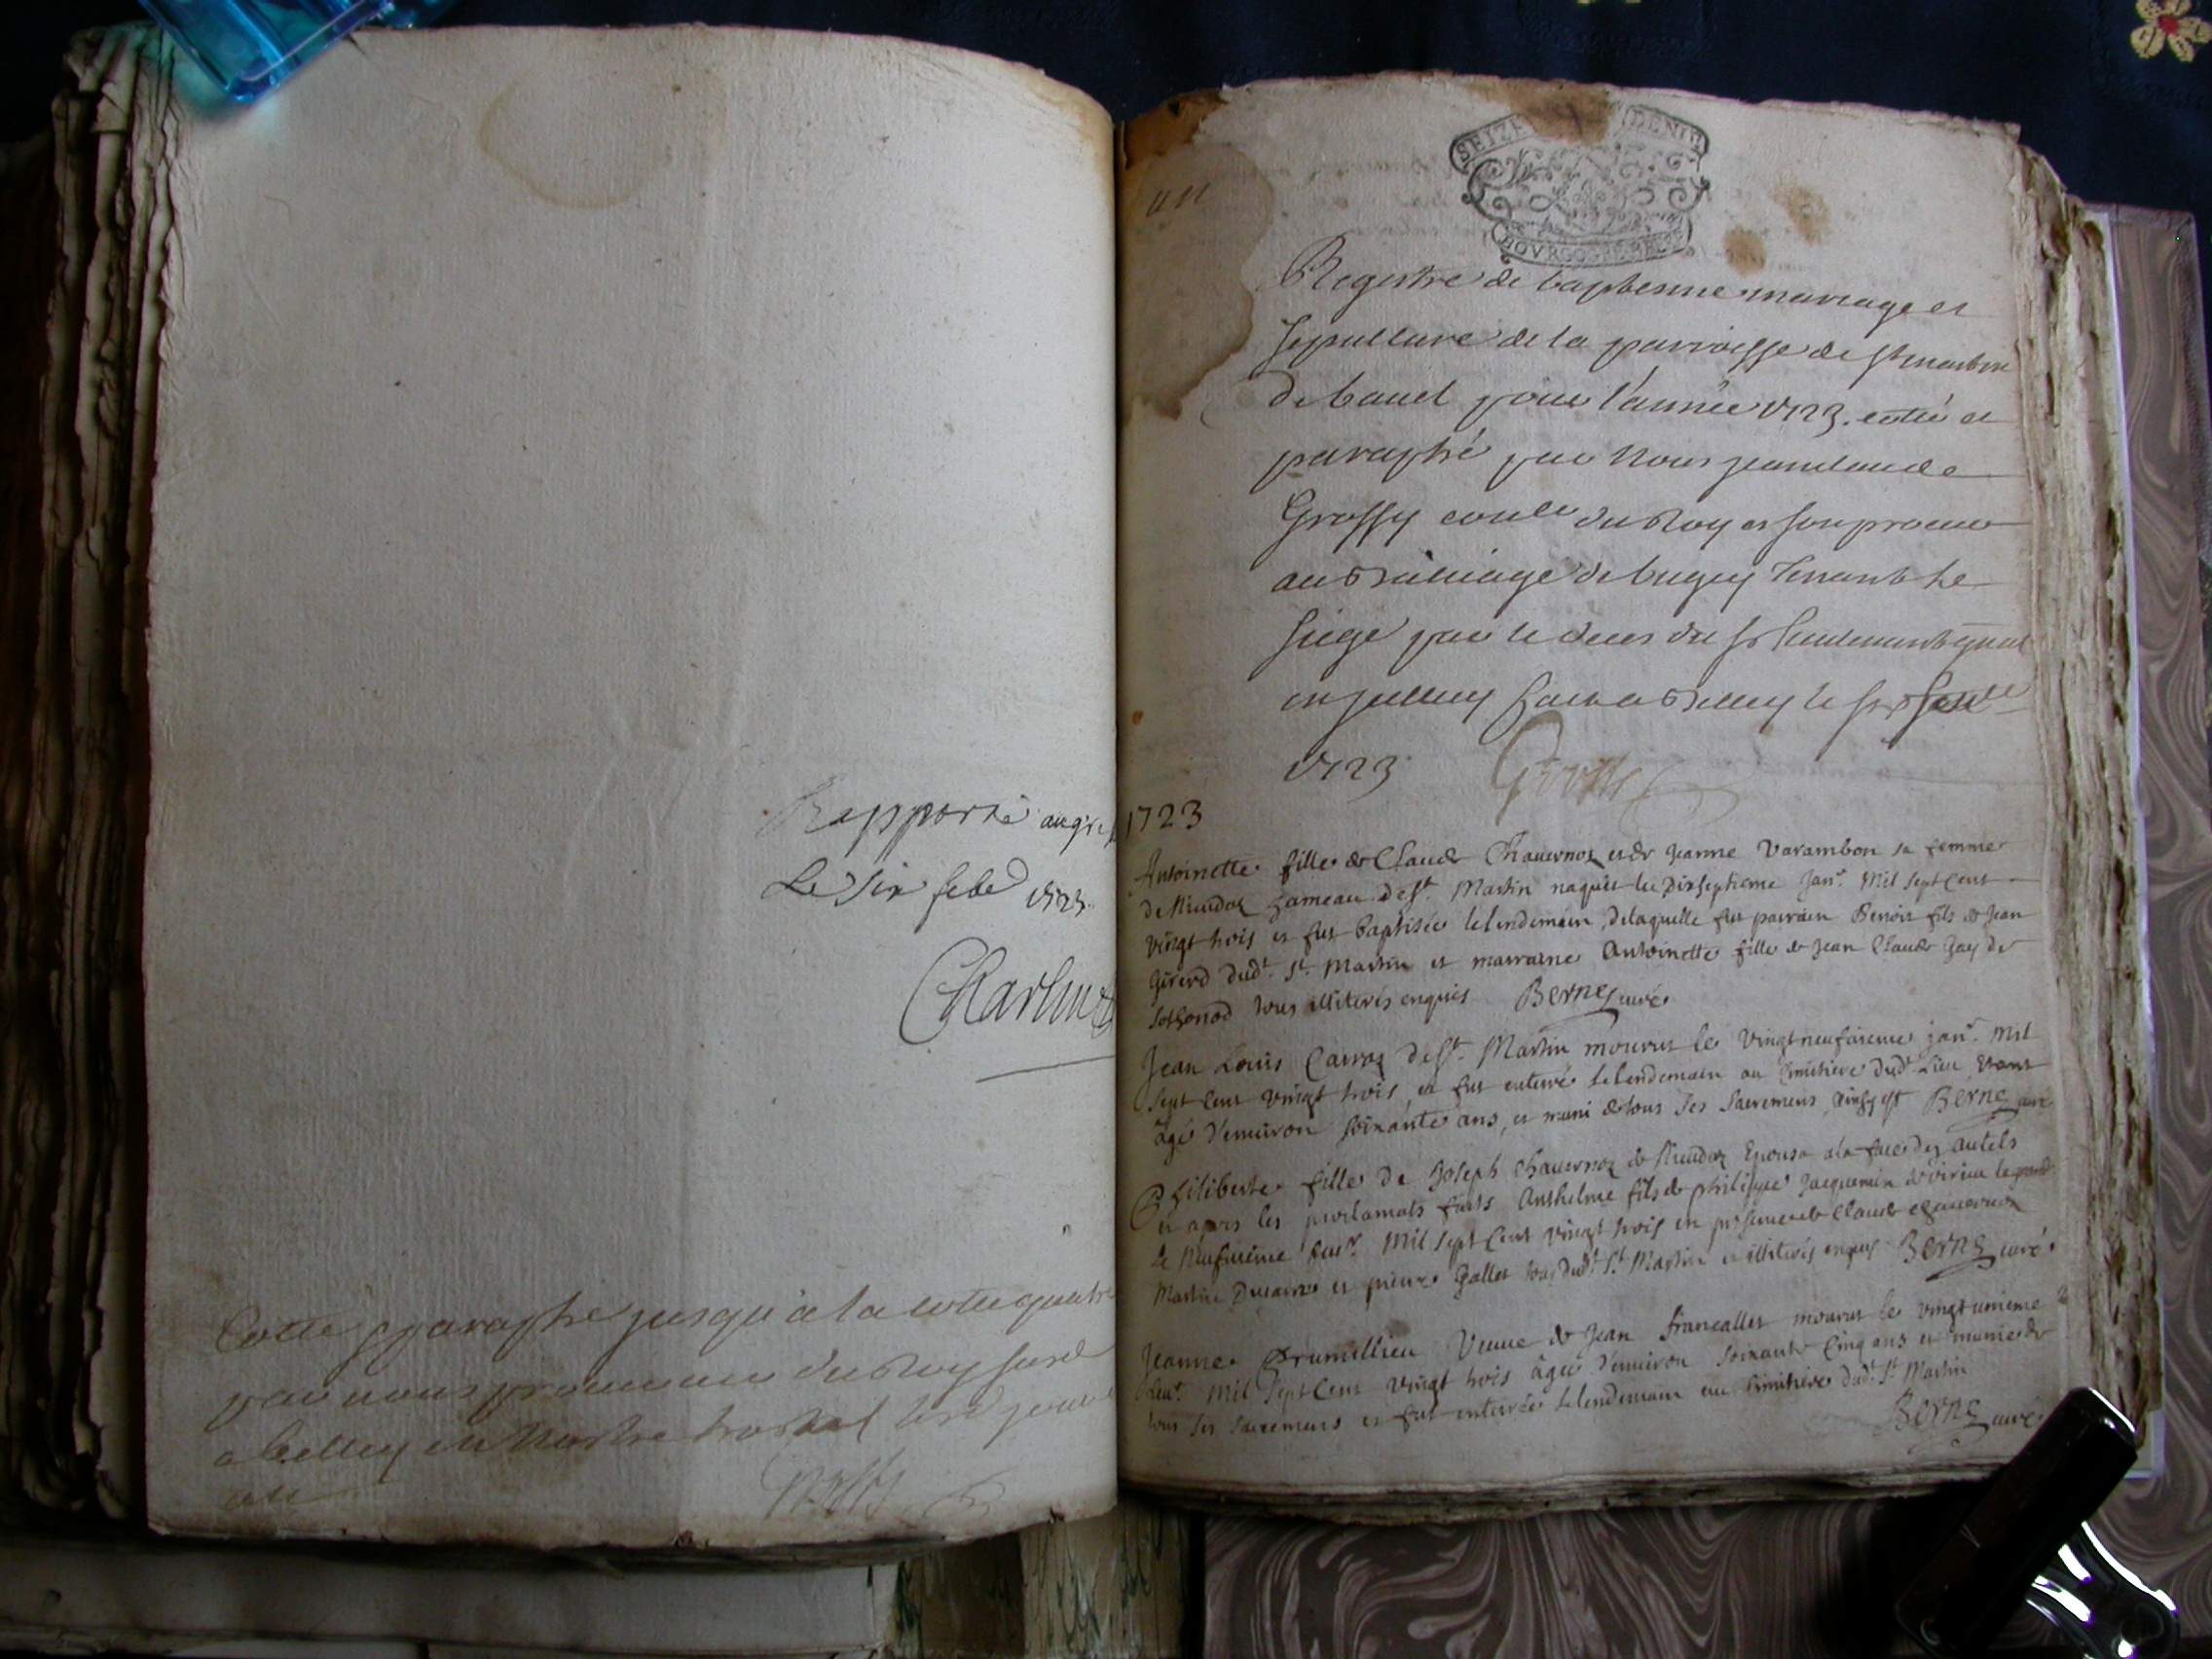 Rapporté au gre
Le six feb 1723.
Cotté et paraphé jusqu'a la cotte quatre
par nous procureur du Roy susd
a belley en nostre hostel lesd jour et
an
SEIZE DENIERS
BOVRGOGNE BRESSE
un
Registre de baptesme mariage et
sepulture de la parroisse de st martin
de bavel pour l'année 1723. cotté et
paraphé par Nous jean claude
Grossy con.er du Roy et son procureur
au Bailliage de bugey Tenant le
siege par le deces du sr Lieutenant gnal
Fait a Belley le
1723 Grossy
1723
Antoinette fille de Claude Chavernoz et de Jeanne Varambon sa femme
de hameau de st. Martin naquit le Dixseptieme Janr. Mil sept Cent
vingt trois et fut baptisée le lendemain, de laquelle fut parrain Benoit fils de Jean
Girerd dudt. st. Martin et marraine Antoinette fille de Jean Claude Gay de
Sothonod tous illiterés enquis Berne curé
Jean Louis Carraz de st. Martin mourut le Vingt neufvieme janr. Mil
sept Cent vingt trois, et fut enterré le lendemain au Cimitiere dudt Lieu etant
âgé d'environ soixante ans, et muni de tous ses Sacremens, ainsy est Berne curé
Philiberte fille de Joseph Chavernoz de Epousa a la face des autels
et apres les proclamats faits Anthelme fils de philippe Jacquemin de virieu le grand
le Neufvieme feur. Mil sept Cent vingt trois en presence de Claude Chavernoz
Martin et pierre Gallet tous dudt. St. Martin et illiterés enquis Berne curé.
Jeanne Brumillieu Veuve de Jean francallet mourut le vingt unieme
feur. Mil sept Cent vingt trois âgée d'environ soixante Cinq ans et munie de
tous ses sacremens et fut enterrée le lendemain au Cimitiere dudt. St. Martin
Berne curé.